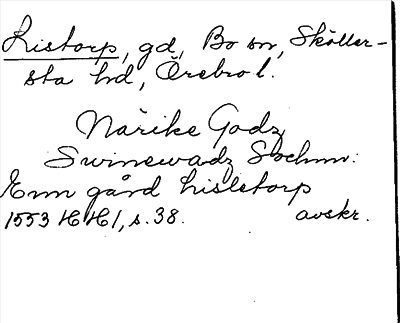 Listorp, gd, Bo sn, Sköller-
sta hd, Örebro l.
Närike Godz
Swinewadz Sochnn:
Enn gård lisletorp
1553 HH1, s. 38. avskr.